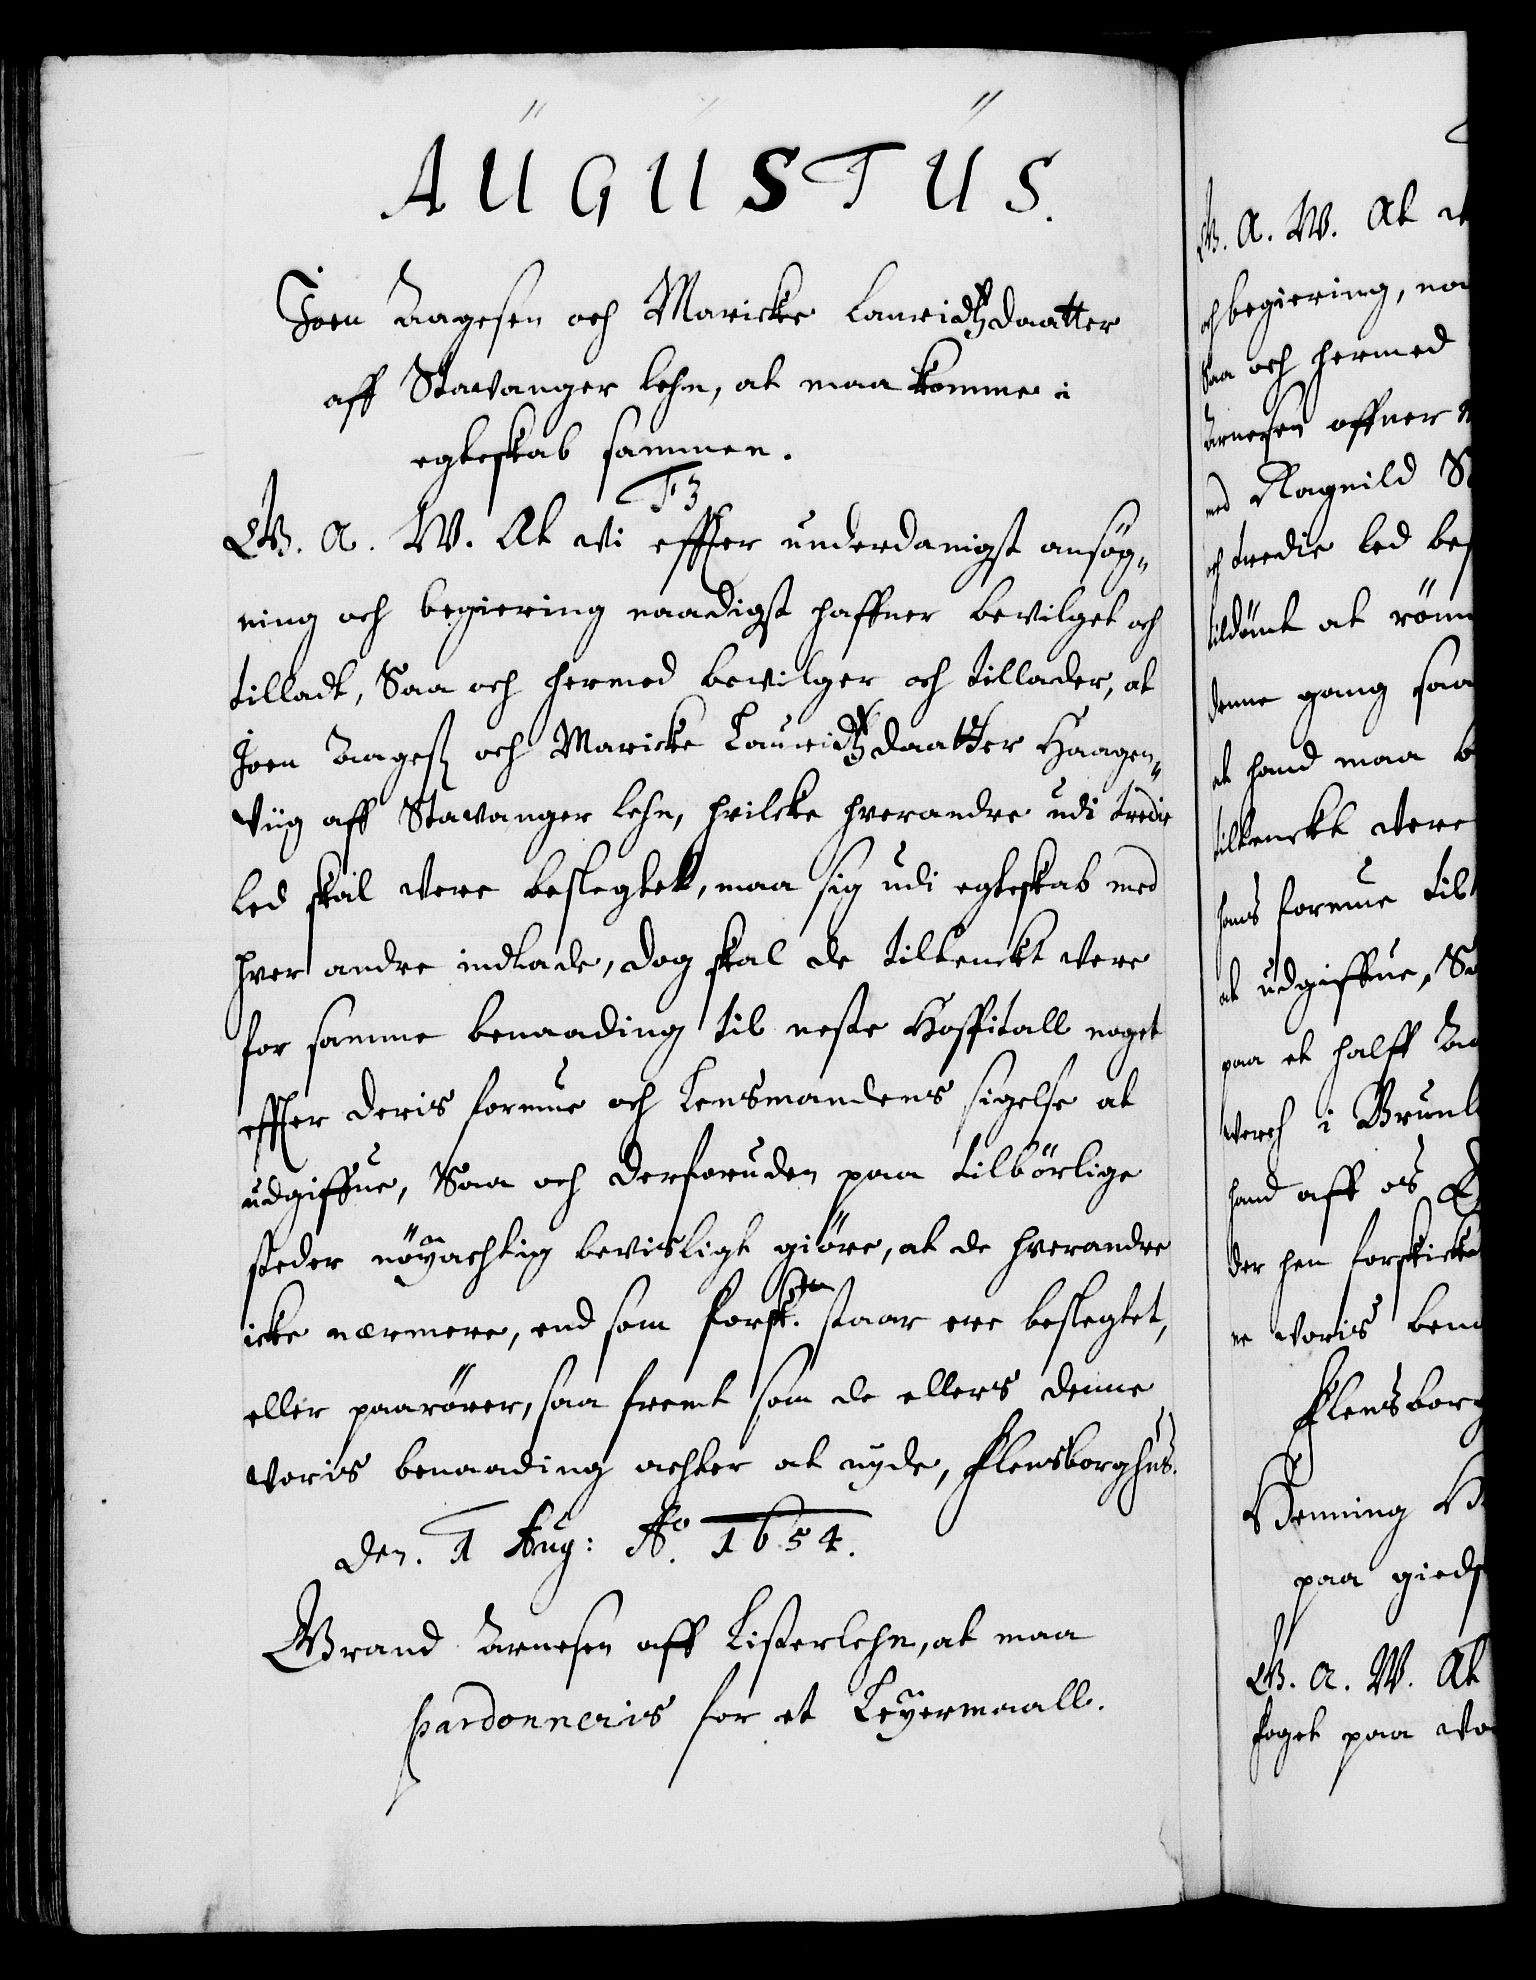 AUGUSTUS.
Joen Aagesen och Maricke Lauridtzdaatter
aff Stavanger lehn, at maa komme i
egteskab sammen.
F3
G. A. W. At vi effter underdanigst ansög„
ning och begiering naadigst haffuer bevilget och
tilladt, Saa och hermed bevilger och tillader, at
Joen Aages: och Maricke Lauridtzdaatter Haagen„
viig aff Stavanger lehn, hvilcke hverandre udi tredie
led skal vere beslegtet, maa sig udi egteskab med
hver andre indlade, dog skal de tiltenckt vere
for samme benaading til neste Hospitall noget
effter deris formue och Lensmandens sigelse at
udgiffue, Saa och derforuden paa tilbörlige
steder nöyachtig bevisligt giöre, at de hverandre
icke nærmere, end som forsk:en staar ere beslegtet,
eller paarörer, saa fremt som de ellers denne
voris benaading achter at nyde, Flensborghus.
den. 1 Aug: Ao. 1654.
Brand Arnesen aff Listerlehn, at maa
pardonneris for et Leyermaall.
G. A. W. At
och begiering, naa
Saa och hermed
Arnesen offuer
med Ragnild
och tredie led bes
tildömt at röm
denne gang saa
at hand maa b
tiltenckt vere
hans formue til
at udgiffue, Sa
paa et halff Aa
verch i Brunl
hand aff os
der hen forskicke
ne voris bena
Flensborg
Henning
paa gieds
G. A. W. At
foget paa vo